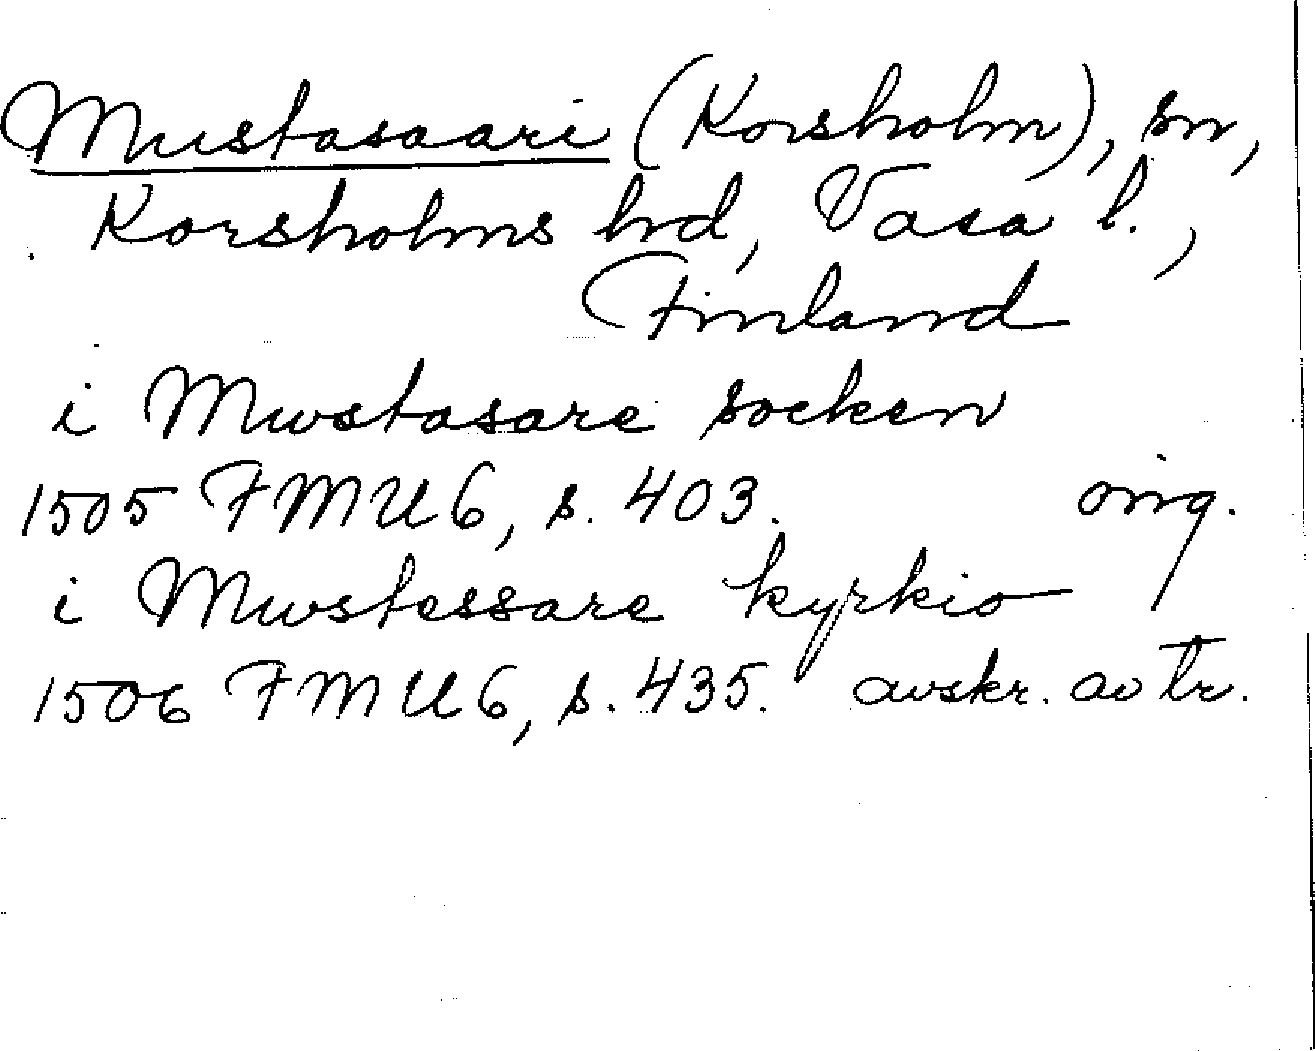 Mustasaari (Korsholm), sn,
Korsholms hd, Vasa l.,
Finland
i Mwstasare socken
1505 FMU 6, s. 403. orig.
i Mwstessare kyrkio
1506 FMU 6, s. 435. avskr. av tr.